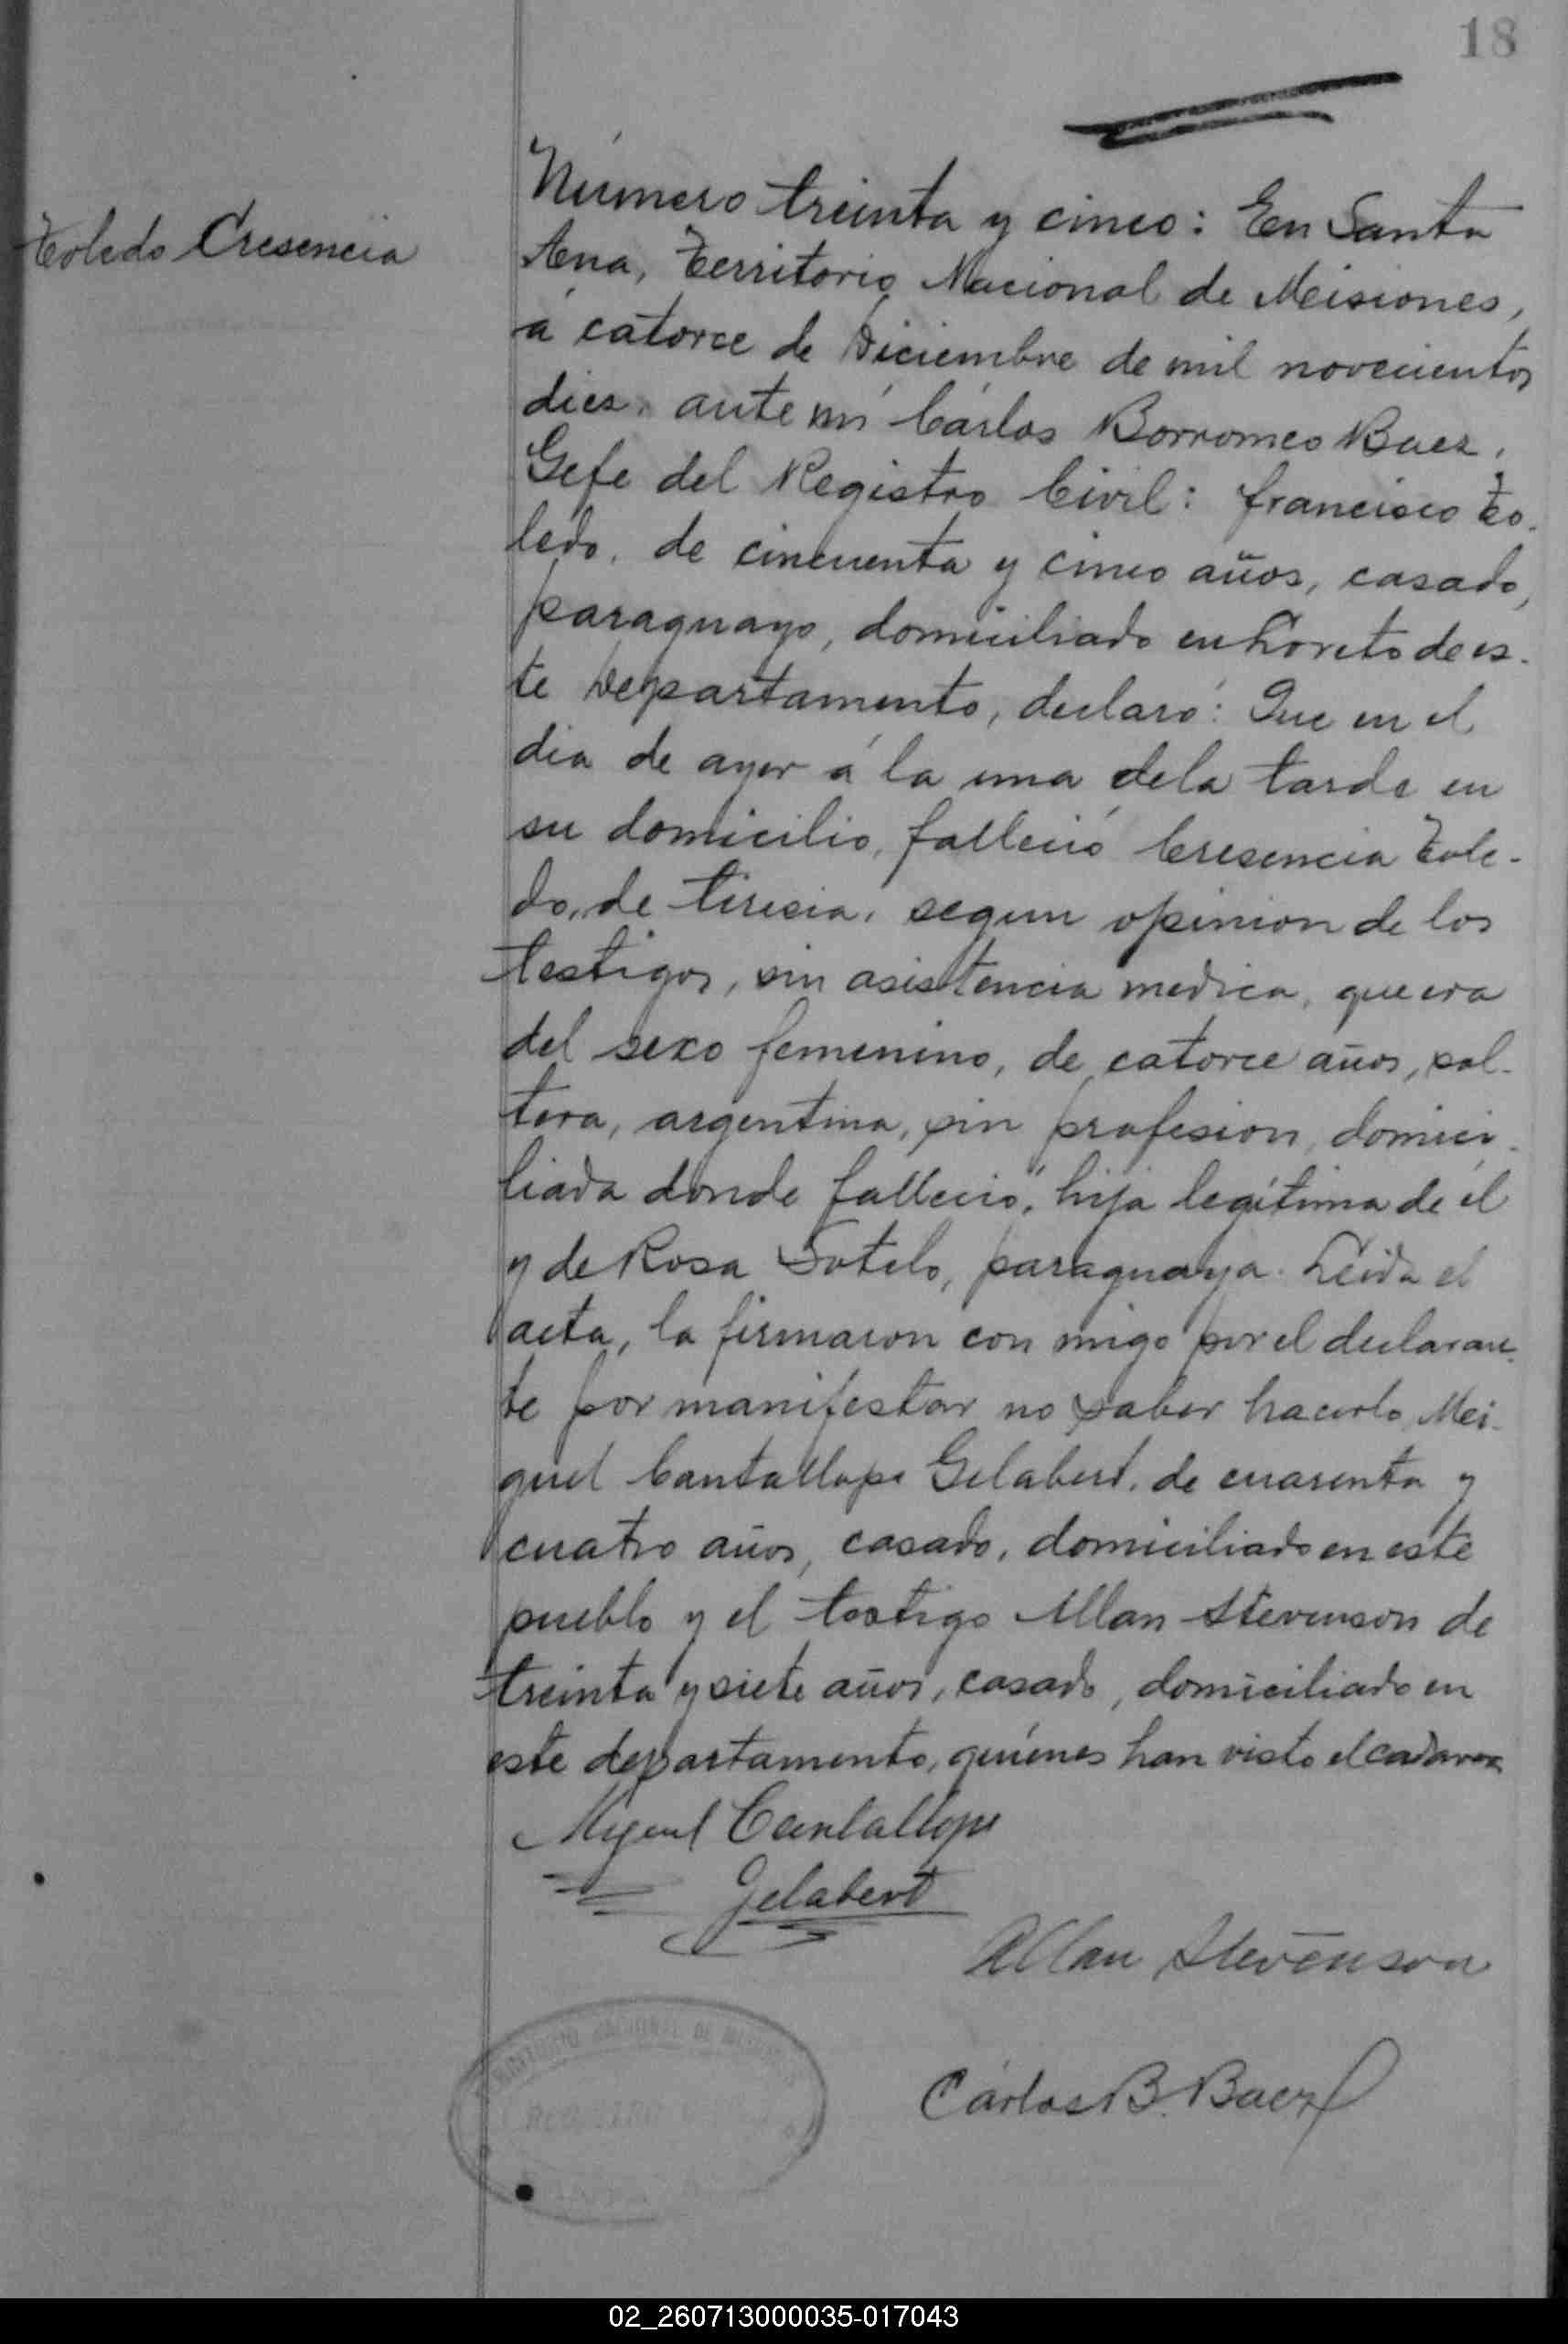 18
Toledo Cresencia
Número treinta y cinco: En Santa
Ana, Territorio Nacional de Misiones,
á catorce de Diciembre de mil novecientos
diez, ante mí Cárlos Borromeo Baez,
Gefe del Registro Civil: Francisco To-
ledo, de cincuenta y cinco años, casado,
paraguayo, domiciliado en Loreto de es-
te Departamento, declaró: Que en el
dia de ayer á la una de la tarde en
su domicilio, falleció Cresencia Tole-
do, de tiricia, segun opinion de los
testigos, sin asistencia medica, que era
del sexo femenino, de catorce años, sol-
tera, argentina, sin profesion, domici-
liada donde falleció, hija legítima de él
y de Rosa Sotelo, paraguaya. Leida el
acta, la firmaron con migo por el declaran-
te por manifestar no saber hacerlo Mi-
guel Cantallops Gelabert, de cuarenta y
cuatro años, casado, domiciliado en este
pueblo y el testigo Allan Stevenson de
treinta y siete años, casado, domiciliado en
este departamento, quiénes han visto el cadaver
Miguel Cantallops
Gelabert
Allan Stevenson
TERRITORIO NACIONAL DE MISIONES
REGISTRO
Cárlos B. Baez
02_260713000035-017043